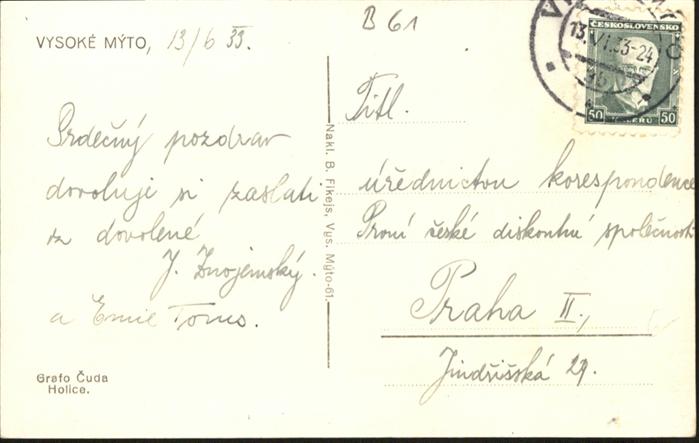 B 61
VYSOKÉ MÝTO, 13/6 33.
Srdečný pozdrav
dovoluje si zaslati
z dovolené
J. Znojemský.
a Emil Toms.
Grafo Čuda
Holice.
Nakl. B. Fikejs, Vys. Mýto-61.
ČESKOSLOVENSKO
50 HALÉŘŮ 50
13.VI.33-24
Titl.
úřednictvu korespondence
První české diskontní společnosti
Praha II.,
Jindřišská 29.